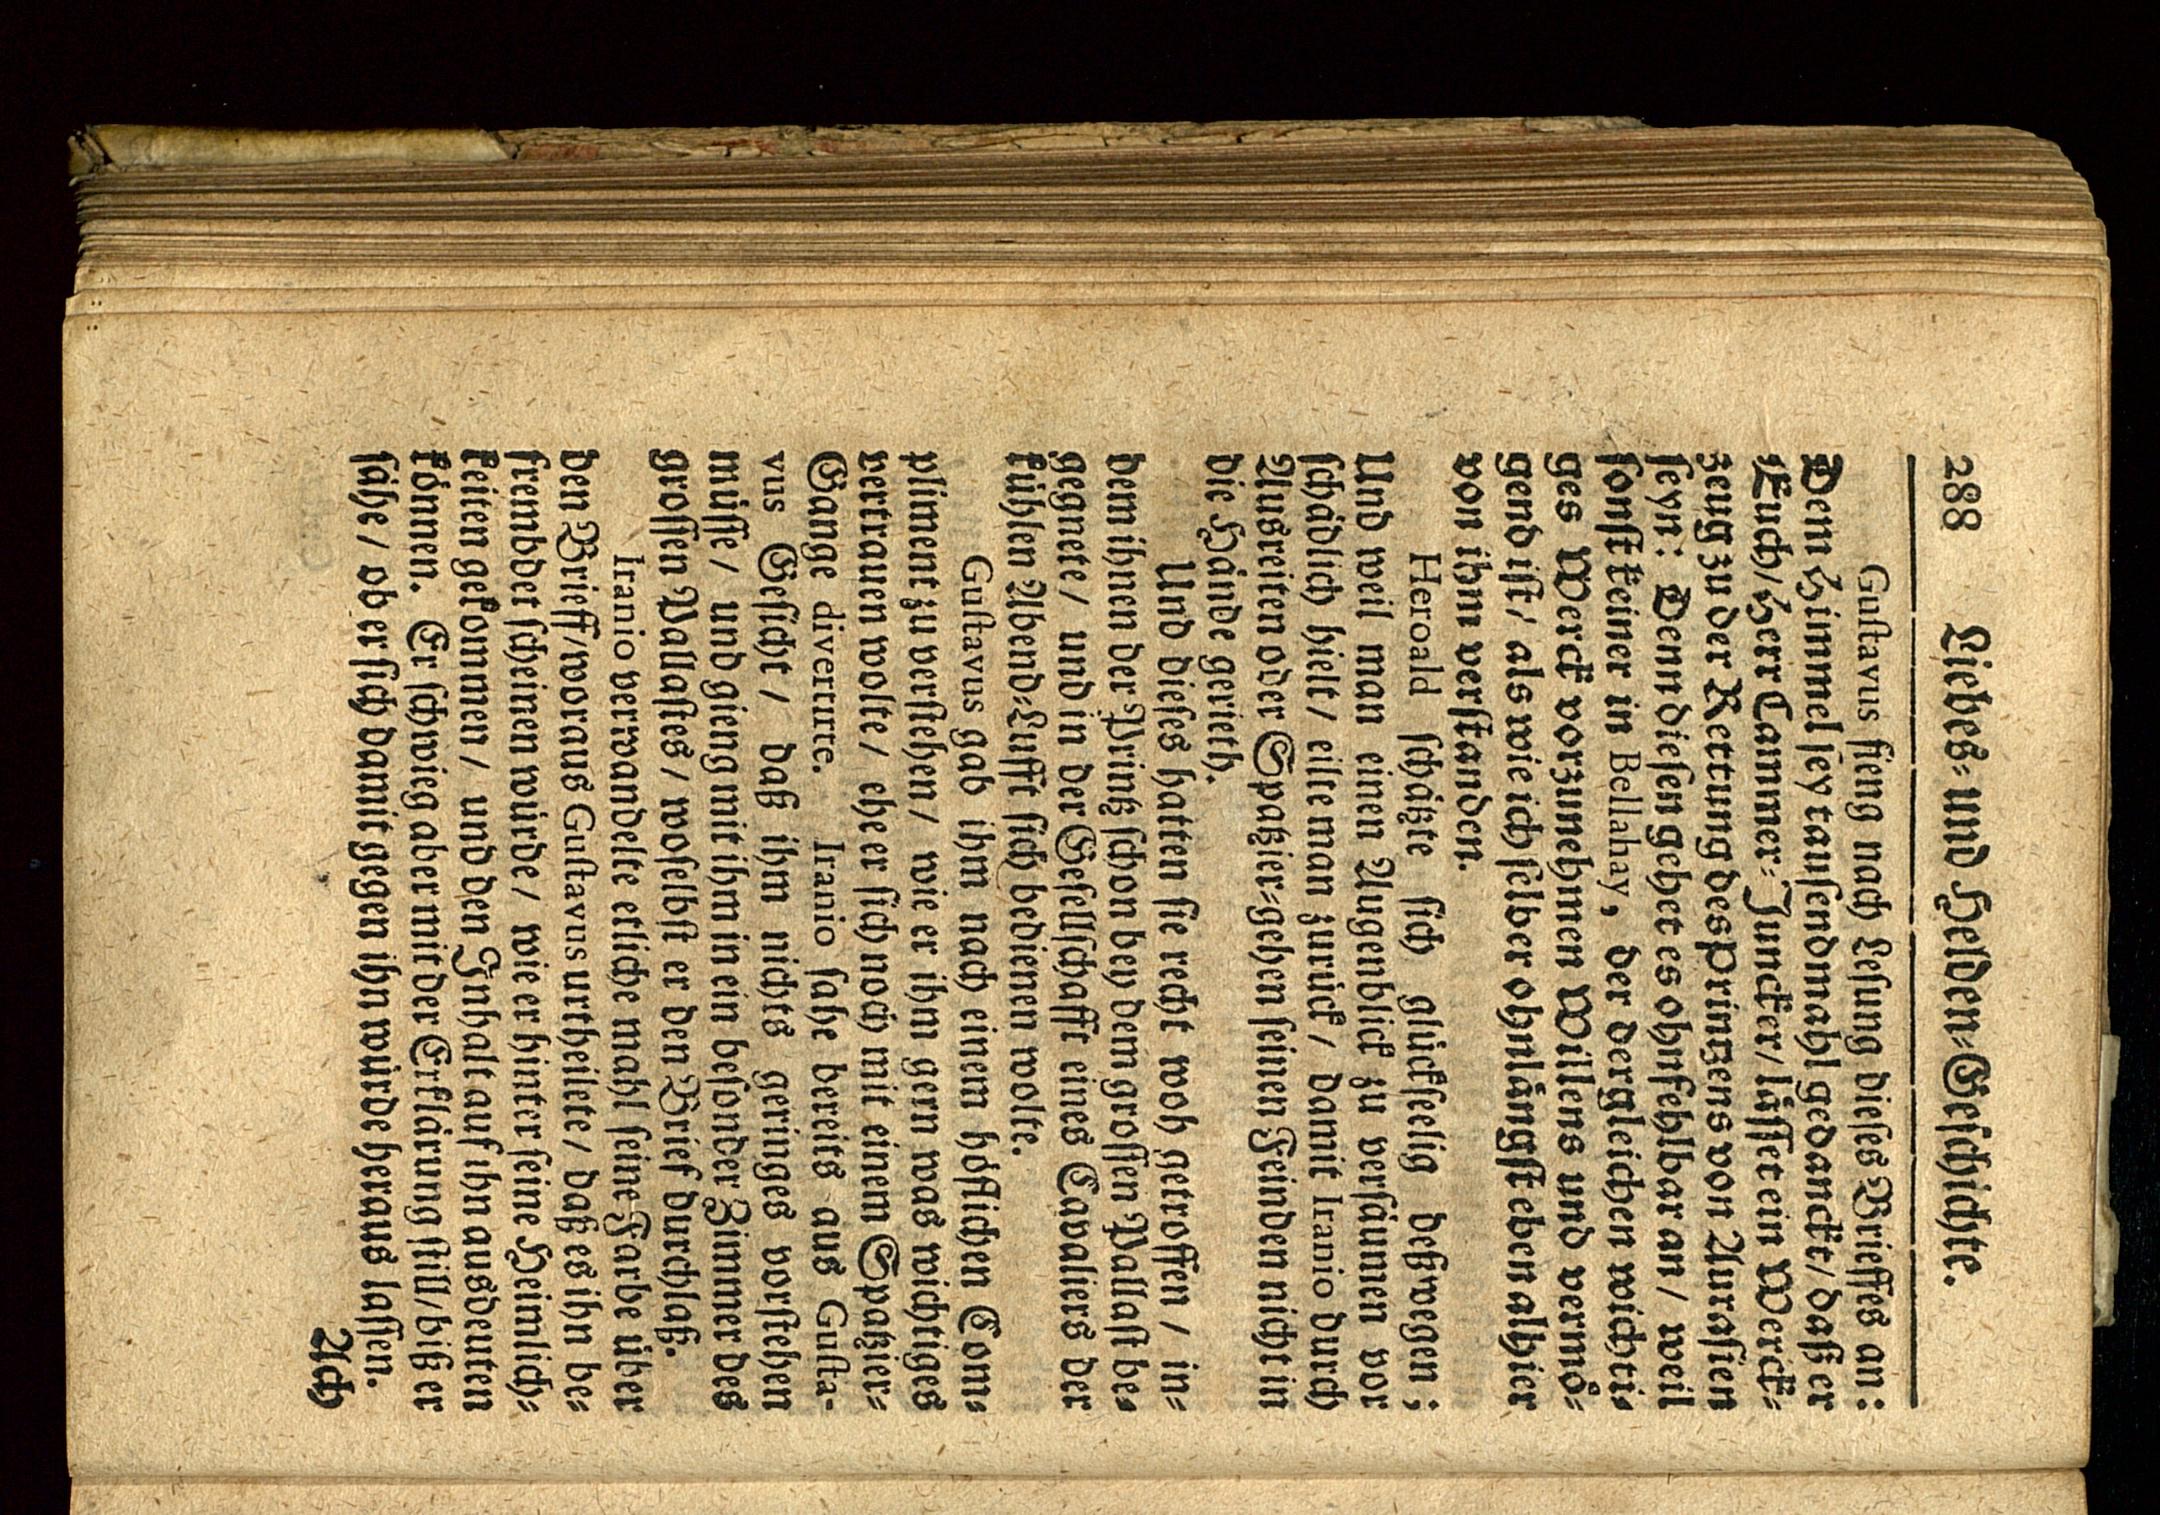 288 Liebes- und Helden-Geschichte.
Guſtavus fieng nach Leſung dieſes Brieffes an:
Dem Himmel ſey tauſendmahl gedanckt/ daß er
Euch/ Herr Cammer-Juncker/ läſſet ein Werck-
zeug zu der Rettung des Printzens von Auraſien
ſeyn: Denn dieſen gehet es ohnfehlbar an/ weil
ſonſt keiner in Bellahay, der dergleichen wichti-
ges Werck vorzunehmen Willens und vermö-
gend iſt/ als wie ich ſelber ohnlängſt eben alhier
von ihm verſtanden.
Heroald ſchätzte ſich glückſeelig deßwegen;
Und weil man einen Augenblick zu verſäumen vor
ſchädlich hielt/ eilte man zurück/ damit Iranio durch
Ausreiten oder Spatzier-gehen ſeinen Feinden nicht in
die Hände gerieth.
Und dieſes hatten ſie recht woh getroffen/ in-
dem ihnen der Printz ſchon bey dem groſſen Pallaſt be-
gegnete/ und in der Geſellſchafft eines Cavaliers der
kühlen Abend-Lufft ſich bedienen wolte.
Guſtavus gab ihm nach einem höflichen Com-
pliment zu verſtehen/ wie er ihm gern was wichtiges
vertrauen wolte/ ehe er ſich noch mit einem Spatzier-
Gange divertirte. Iranio ſahe bereits aus Guſta-
vus Geſicht/ daß ihm nichts geringes vorſtehen
müſſe/ und gieng mit ihm in ein beſonder Zimmer des
groſſen Pallaſtes/ woſelbſt er den Brief durchlaß.
Iranio verwandelte etliche mahl ſeine Farbe über
den Brieff/ woraus Guſtavus urtheilete/ daß es ihn be-
frembdet ſcheinen würde/ wie er hinter ſeine Heimlich-
keiten gekommen/ und den Inhalt auf ihn ausdeuten
können. Er ſchwieg aber mit der Erklärung ſtill/ biß er
ſähe/ ob er ſich damit gegen ihn würde heraus laſſen.
Ach